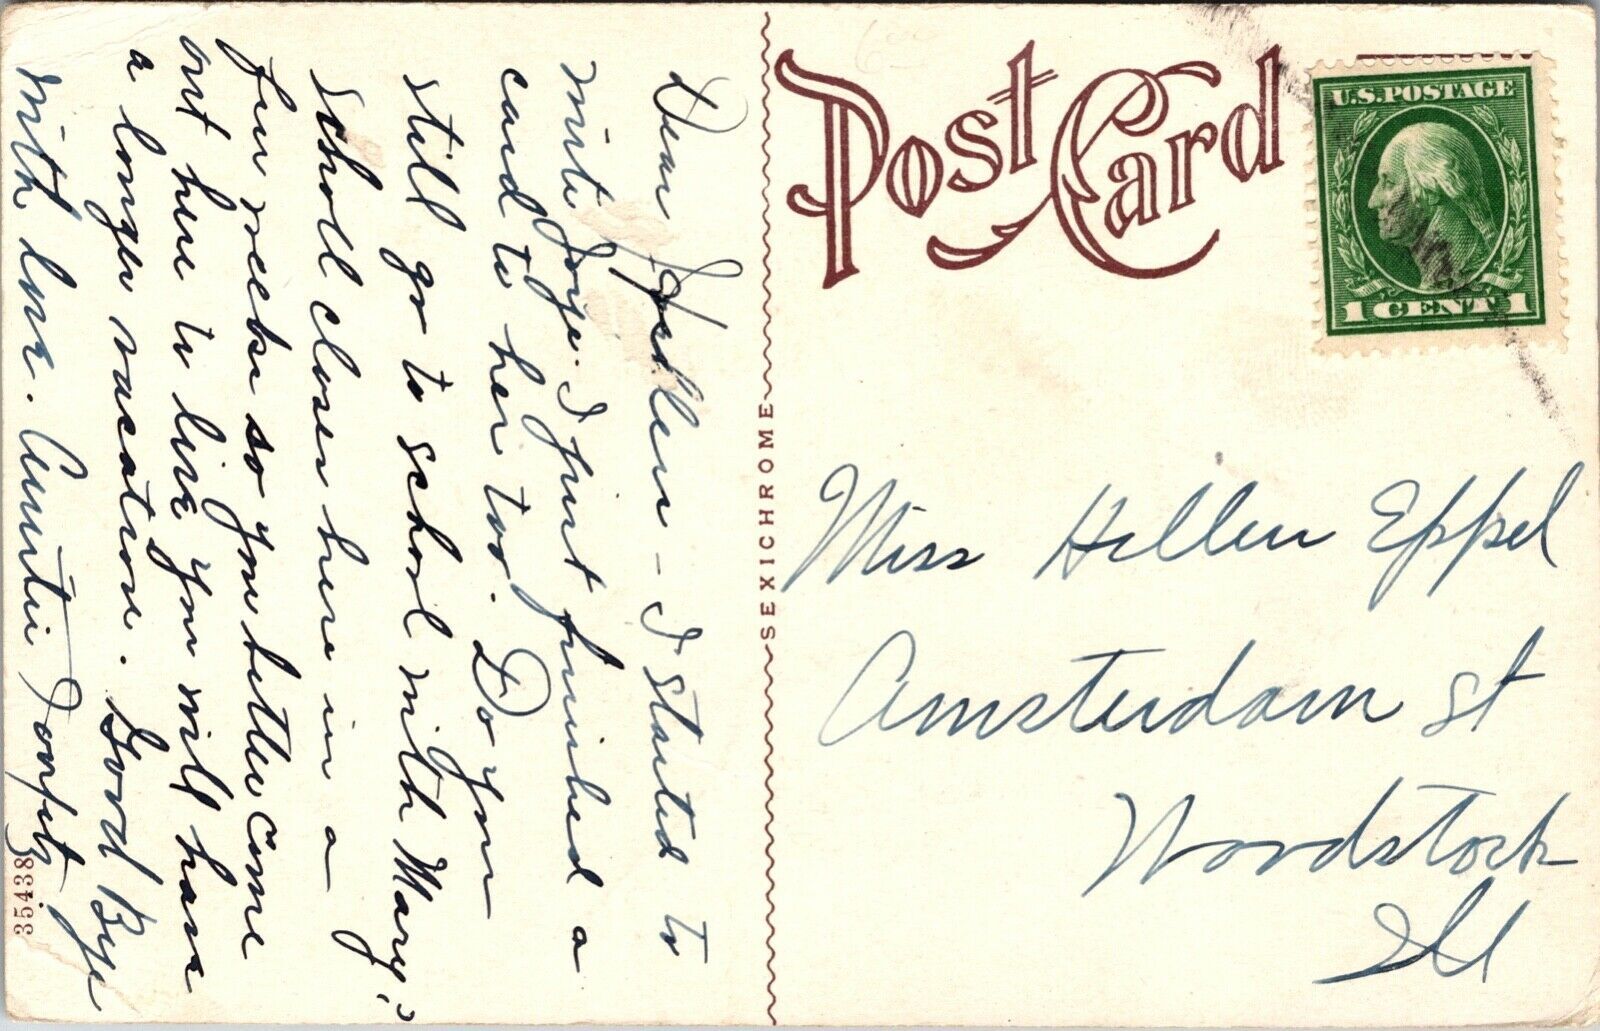 Post Card
U.S. POSTAGE
1 CENT 1
SEXICHROME
35438
Dear Hellen - I started to
write Joye. I just finished a
card to her too. Do you
still go to school with Mary?
School closes here in a
few weeks so you better come
out here to live you will have
a longer vacation. Good Bye
with love. Auntie
Miss Hellen Eppel
Amsterdam St
Woodstock
Ill